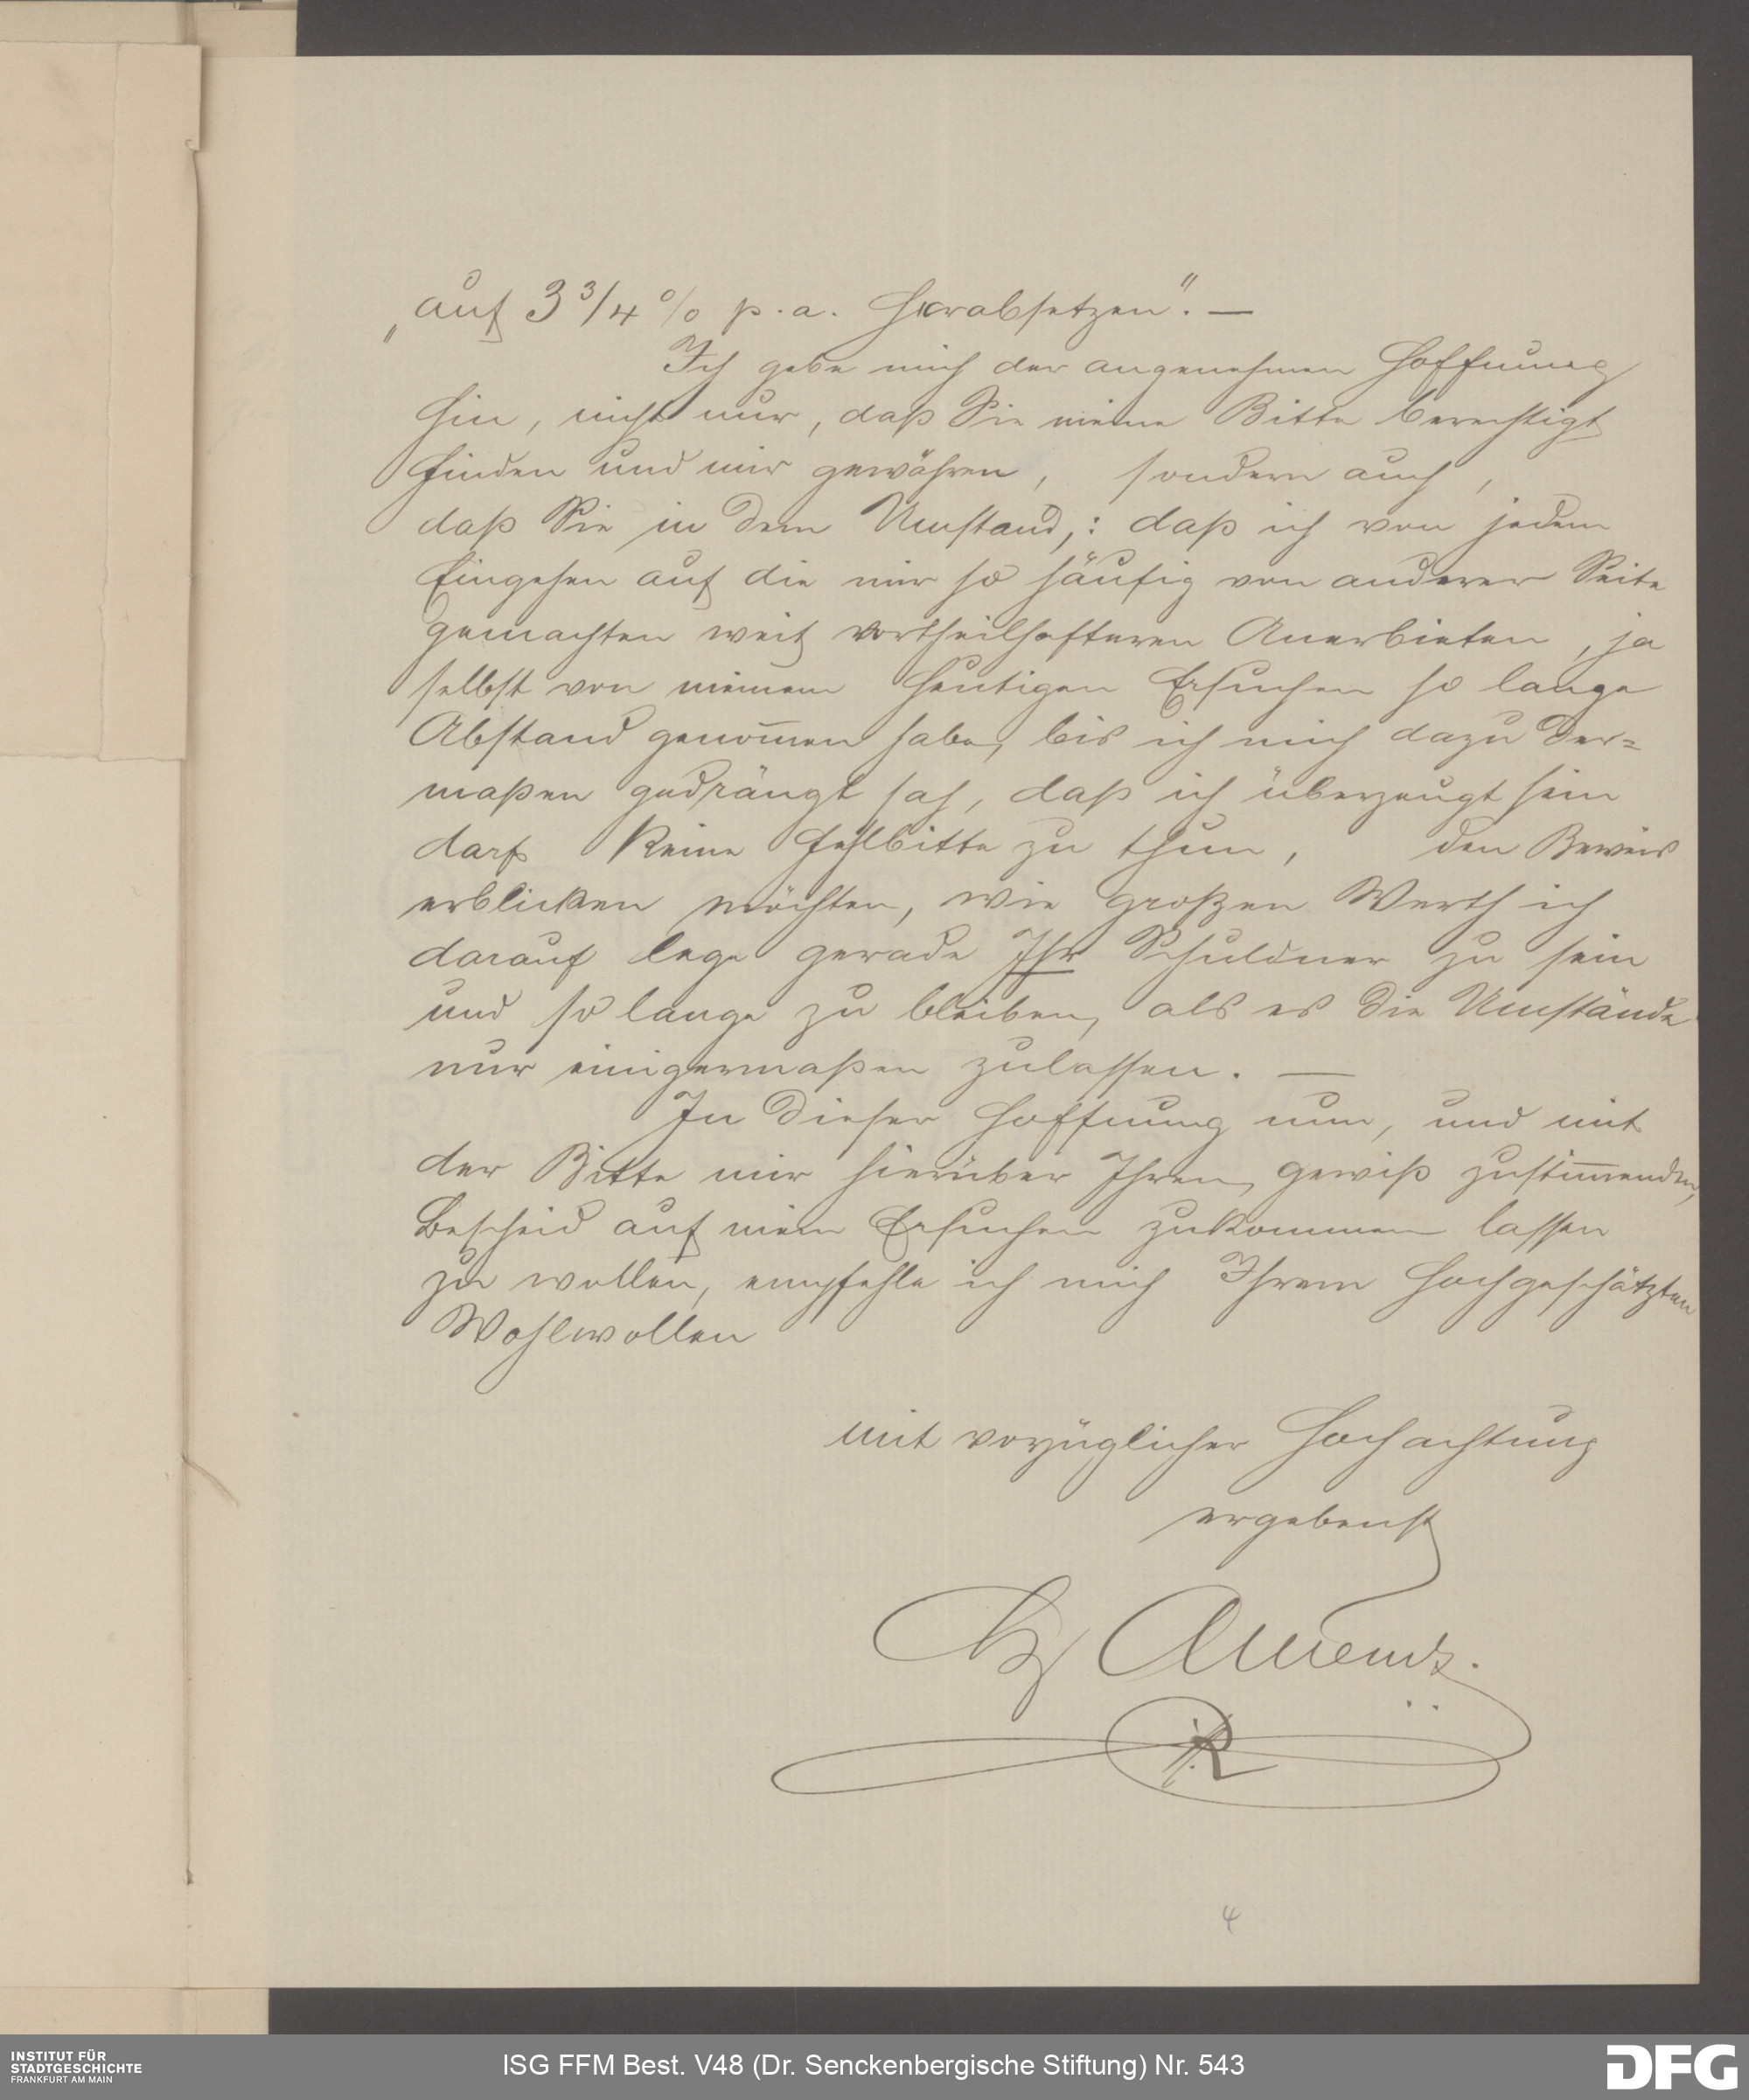 „auf 3 3/4 % p. a. Herabsetzen". —
Ich gebe mich der angenehmen Hoffnung
hin, nicht nur, daß Sie meine Bitte berechtigt
finden und mir gewähren, sondern auch,
daß Sie in dem Umstand,: daß ich von jedem
Eingehen auf die mir so häufig von anderer Seite
gemachten weit vortheilhafteren Anerbieten, ja
selbst von meinem heutigen Ersuchen so lange
Abstand genom̅en habe, bis ich mich dazu der=
maßen gedrängt sah, daß ich überzeugt sein
darf keine Fehlbitte zu thun, den Beweis
erblicken möchten, wie großen Werth ich
darauf lege gerade Ihr Schuldner zu sein
und so lange zu bleiben, als es die Umstände
nur einigermaßen zulassen. —
In dieser Hoffnung nun, und mit
der Bitte mir hierüber Ihren, gewiß zustim̅enden,
Bescheid auf mein Ersuchen zukommen lassen
zu wollen, empfehle ich mich Ihrem hochgeschätzten
Wohlwollen
mit vorzüglicher Hochachtung
ergebenst
4
INSTITUT FÜR
STADTGESCHICHTE
FRANKFURT AM MAIN
ISG FFM Best. V48 (Dr. Senckenbergische Stiftung) Nr. 543
DFG